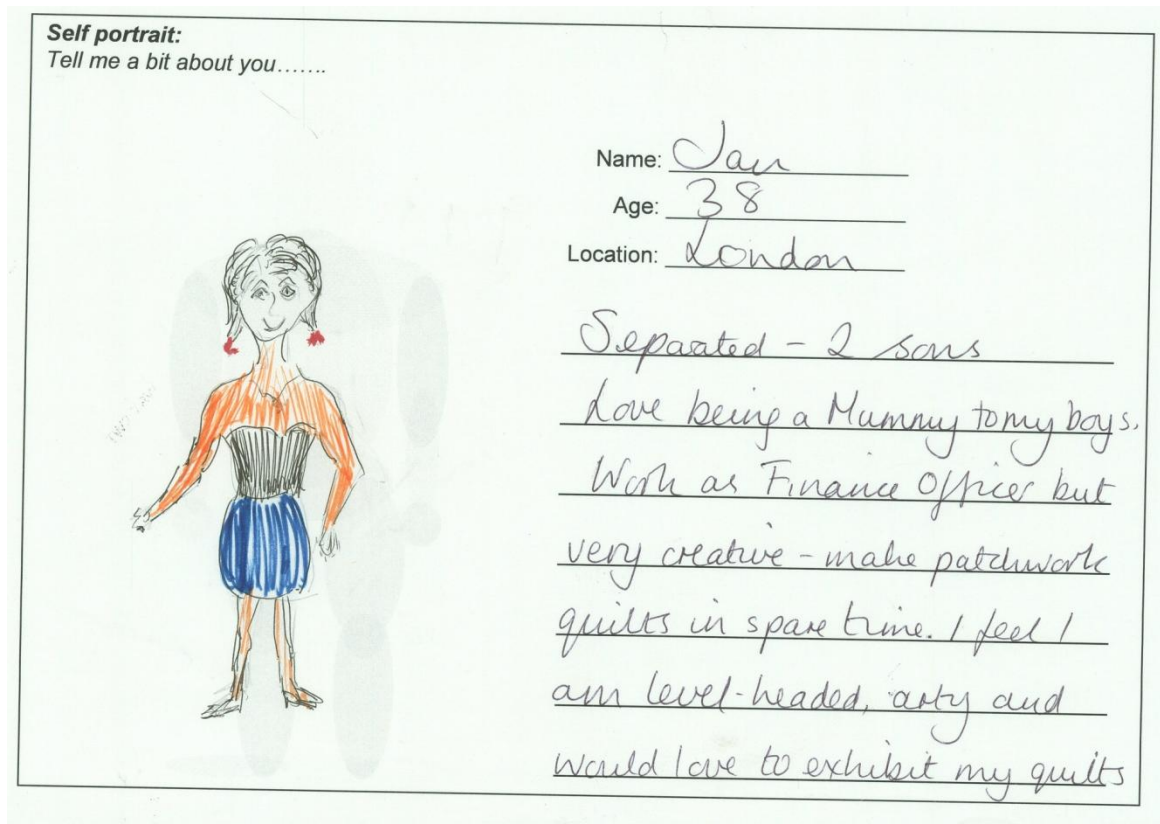 Self portrait:
Tell me a bit about you.......
Name: Jan
Age: 38
Location: London
Separated - 2 sons
Love being a Mummy to my boys.
Work as Finance Officer but
very creative - make patchwork
quilts in spare time. I feel I
am level-headed, arty and
would love to exhibit my quilts